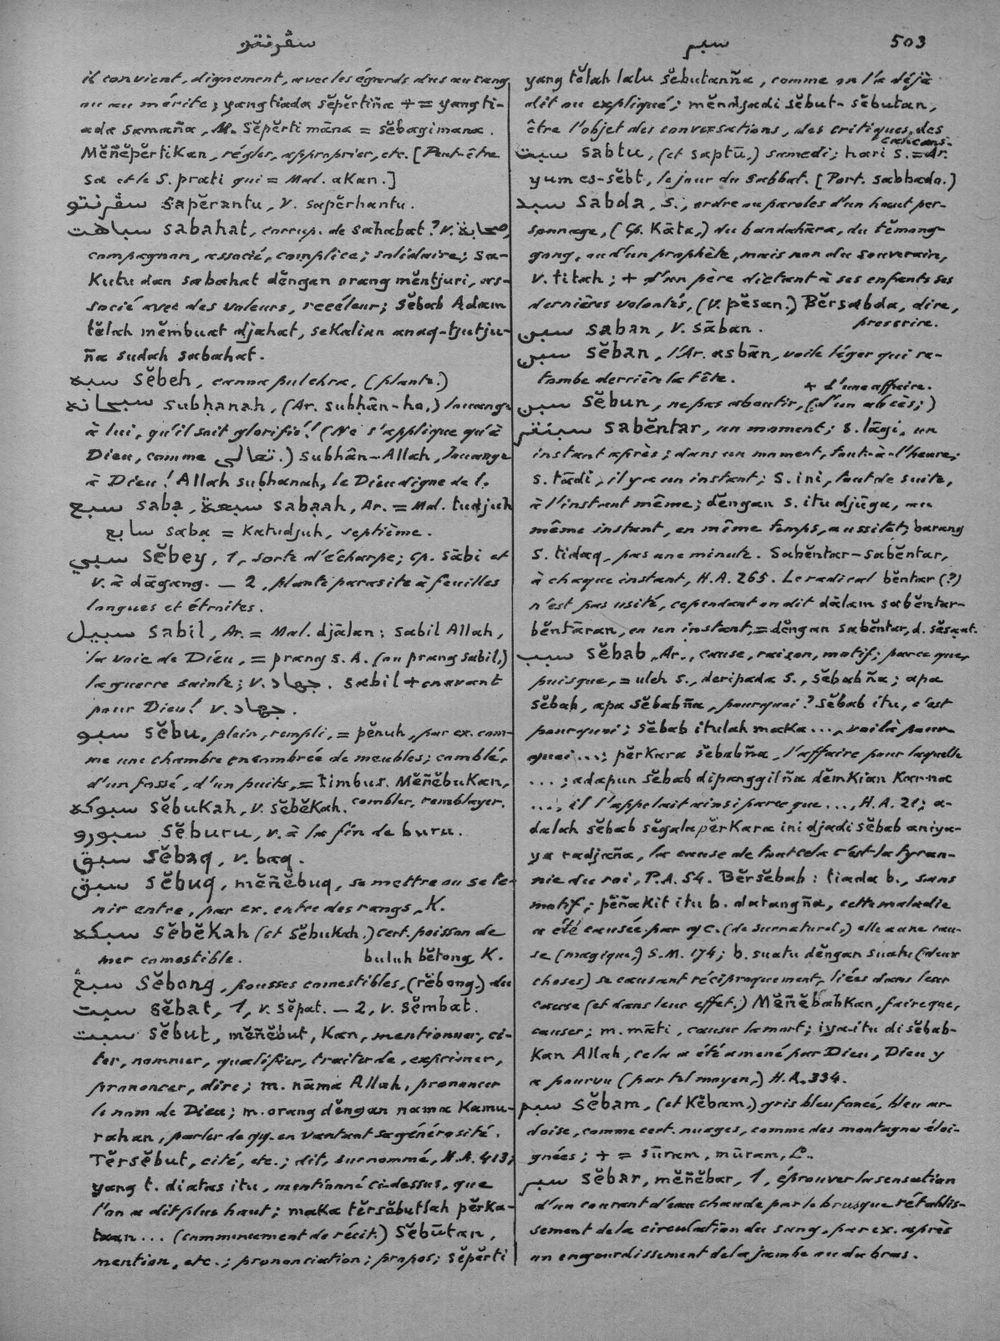 سڤرنتو
سبم
503
il convient, dignement, avec les égards dus au rang
ou au mérite; yang tiada sĕpĕrtiña += yang ti-
ada samaña, M. Sĕpĕrti māna = sĕbagimana.
Mĕñĕpĕrtikan, régler, approprier, etc. [Peut-être
Sa et le S. prati qui = Mal. akan.]
سڤرنتو sapĕrantu, v. sapĕrhantu.
سباهت sabahat, corrup. de sahabat? v. صحابة,
compagnon, associé, complice; solidaire; sa-
kutu dan sabahat dĕngan orang mĕntjuri, as-
socié avec des voleurs, recéleur; sĕbab Adam
tĕlah mĕmbuat djahat, sekalian anaq-tjutju-
ña sudah sabahat.
سبه sĕbeh, canna pulchra, (plante.)
سبحانه subḥanah, (Ar. subḥān-ho,) louange
à lui, qu'il soit glorifié! (Ne s'applique qu'à
Dieu, comme تعالى.) subḥān-Allah, louange
à Dieu! Allah subḥanah, le Dieu digne de l.
سبع saba, سبعة sabaah, Ar. = Mal. tudjuh
سابع saba = katudjuh, septième.
سبي sĕbey, 1, sorte d'écharpe; cp. sābi et
v. à dāgang. — 2, plante parasite à feuilles
longues et étroites.
سبيل sabil, Ar. = Mal. djālan: sabil Allah,
la voie de Dieu, = prang S. A. (ou prang sabil,)
la guerre sainte; v. جهاد. sabil + en avant
pour Dieu! v. جهاد.
سبو sĕbu, plein, rempli, = pĕnuh, par ex. com-
me une chambre encombrée de meubles; comblé,
d'un fossé, d'un puits, = timbus. Mĕñĕbukan,
combler, remblayer.
سبوكه sĕbukah, v. sĕbĕkah.
سبورو sĕburu, v. à la fin de buru.
سبق sĕbaq, v. baq.
سبق sĕbuq, mĕñĕbuq, se mettre ou se te-
nir entre, par ex. entre des rangs, K.
سبكه sĕbĕkah (et sĕbukah.) cert. poisson de
mer comestible. buluh bĕtong K.
سبڠ sĕbong, pousses comestibles, (rĕbong.) du
سبت sĕbat, 1, v. sĕpat. — 2, v. sĕmbat.
سبت sĕbut, mĕñĕbut, kan, mentionner, ci-
ter, nommer, qualifier, traiter de, exprimer,
prononcer, dire; m. nāma Allah, prononcer
le nom de Dieu; m. orang dĕngan nama kamu-
rahan, parler de qq. en vantant sa générosité.
Tĕrsĕbut, cité, etc.; dit, surnommé, H.A. 413;
yang t. diatas itu, mentionné ci-dessus, que
l'on a dit plus haut; maka tĕrsĕbutlah pĕrka-
taan... (commencement de récit.) Sĕbūtan,
mention, etc.; prononciation; propos; sĕpĕrti
yang tĕlah lalu sĕbutanña, comme on l'a déjà
dit ou expliqué; mĕndjadi sĕbut-sĕbutan,
être l'objet des conversations, des critiques, des
cancans.
سبت sabtu, (et saptū.) samedi; hari S. = Ar.
yum es-sĕbt, le jour du sabbat. [Port. sabbado.]
سبد sabda, S., ordre ou paroles d'un haut per-
sonnage, (cp. kāta,) du bandahāra, du tĕmong-
gong, ou d'un prophète, mais non du souverain,
v. titah; + d'un père dictant à ses enfants ses
dernières volontés, (v. pĕsan.) Bĕrsabda, dire,
prescrire.
سبن saban, v. sāban.
سبن sĕban, l'Ar. asbān, voile léger qui re-
tombe derrière la tête.
+ d'une affaire.
سبن sĕbun, ne pas aboutir, (d'un abcès;)
سبنتر sabĕntar, un moment; s. lāgi, un
instant après; dans un moment, tout-à-l'heure;
s. tādi, il y a un instant; s. ini, tout de suite,
à l'instant même; dĕngan s. itu djūga, au
même instant, en même temps, aussitôt; barang
s. tidaq, pas une minute. Sabĕntar-sabĕntar,
à chaque instant, H.A. 265. Le radical bĕntar (?)
n'est pas usité, cependant on dit dālam sabĕntar-
bĕntāran, en un instant, = dĕngan sabĕntar, d. sĕsaat.
سبب sĕbab, Ar., cause, raison, motif; parce que,
puisque, = uleh s., deripada s., sĕbabña; apa
sĕbab, apa sĕbabña, pourquoi? Sĕbab itu, c'est
pourquoi; sĕbab itulah maka..., voilà pour-
quoi...; pĕrkara sĕbabña, l'affaire pour laquelle
...; adapun sĕbab dipanggilña dĕmkian karna
..., il l'appelait ainsi parce que..., H.A. 21; a-
dalah sĕbab sĕgala pĕrkara ini djadi sĕbab aniya-
ya radjaña, la cause de tout cela c'est la tyran-
nie du roi, P.A. 54. Bĕrsĕbab: tiada b., sans
motif; pĕñakit itu b. datangña, cette maladie
a été causée par qc. (de surnaturel.) elle a une cau-
se (magique,) S.M. 174; b. suatu dĕngan suatu (deux
choses) se causant réciproquement, liées dans leur
cause (et dans leur effet.) Mĕñĕbabkan, faire que,
causer; m. māti, causer la mort; iya-itu disĕbab-
kan Allah, cela a été amené par Dieu, Dieu y
a pourvu (par tel moyen,) H.A. 334.
سبم sĕbam, (et kĕbam,) gris bleu foncé, bleu ar-
doise, comme cert. nuages, comme des montagnes éloi-
gnées; + = sūram, mūram, L.
سبر sĕbar, mĕñĕbar, 1, éprouver la sensation
d'un courant d'eau chaude par le brusque rétablis-
sement de la circulation du sang, par ex. après
un engourdissement de la jambe ou du bras.